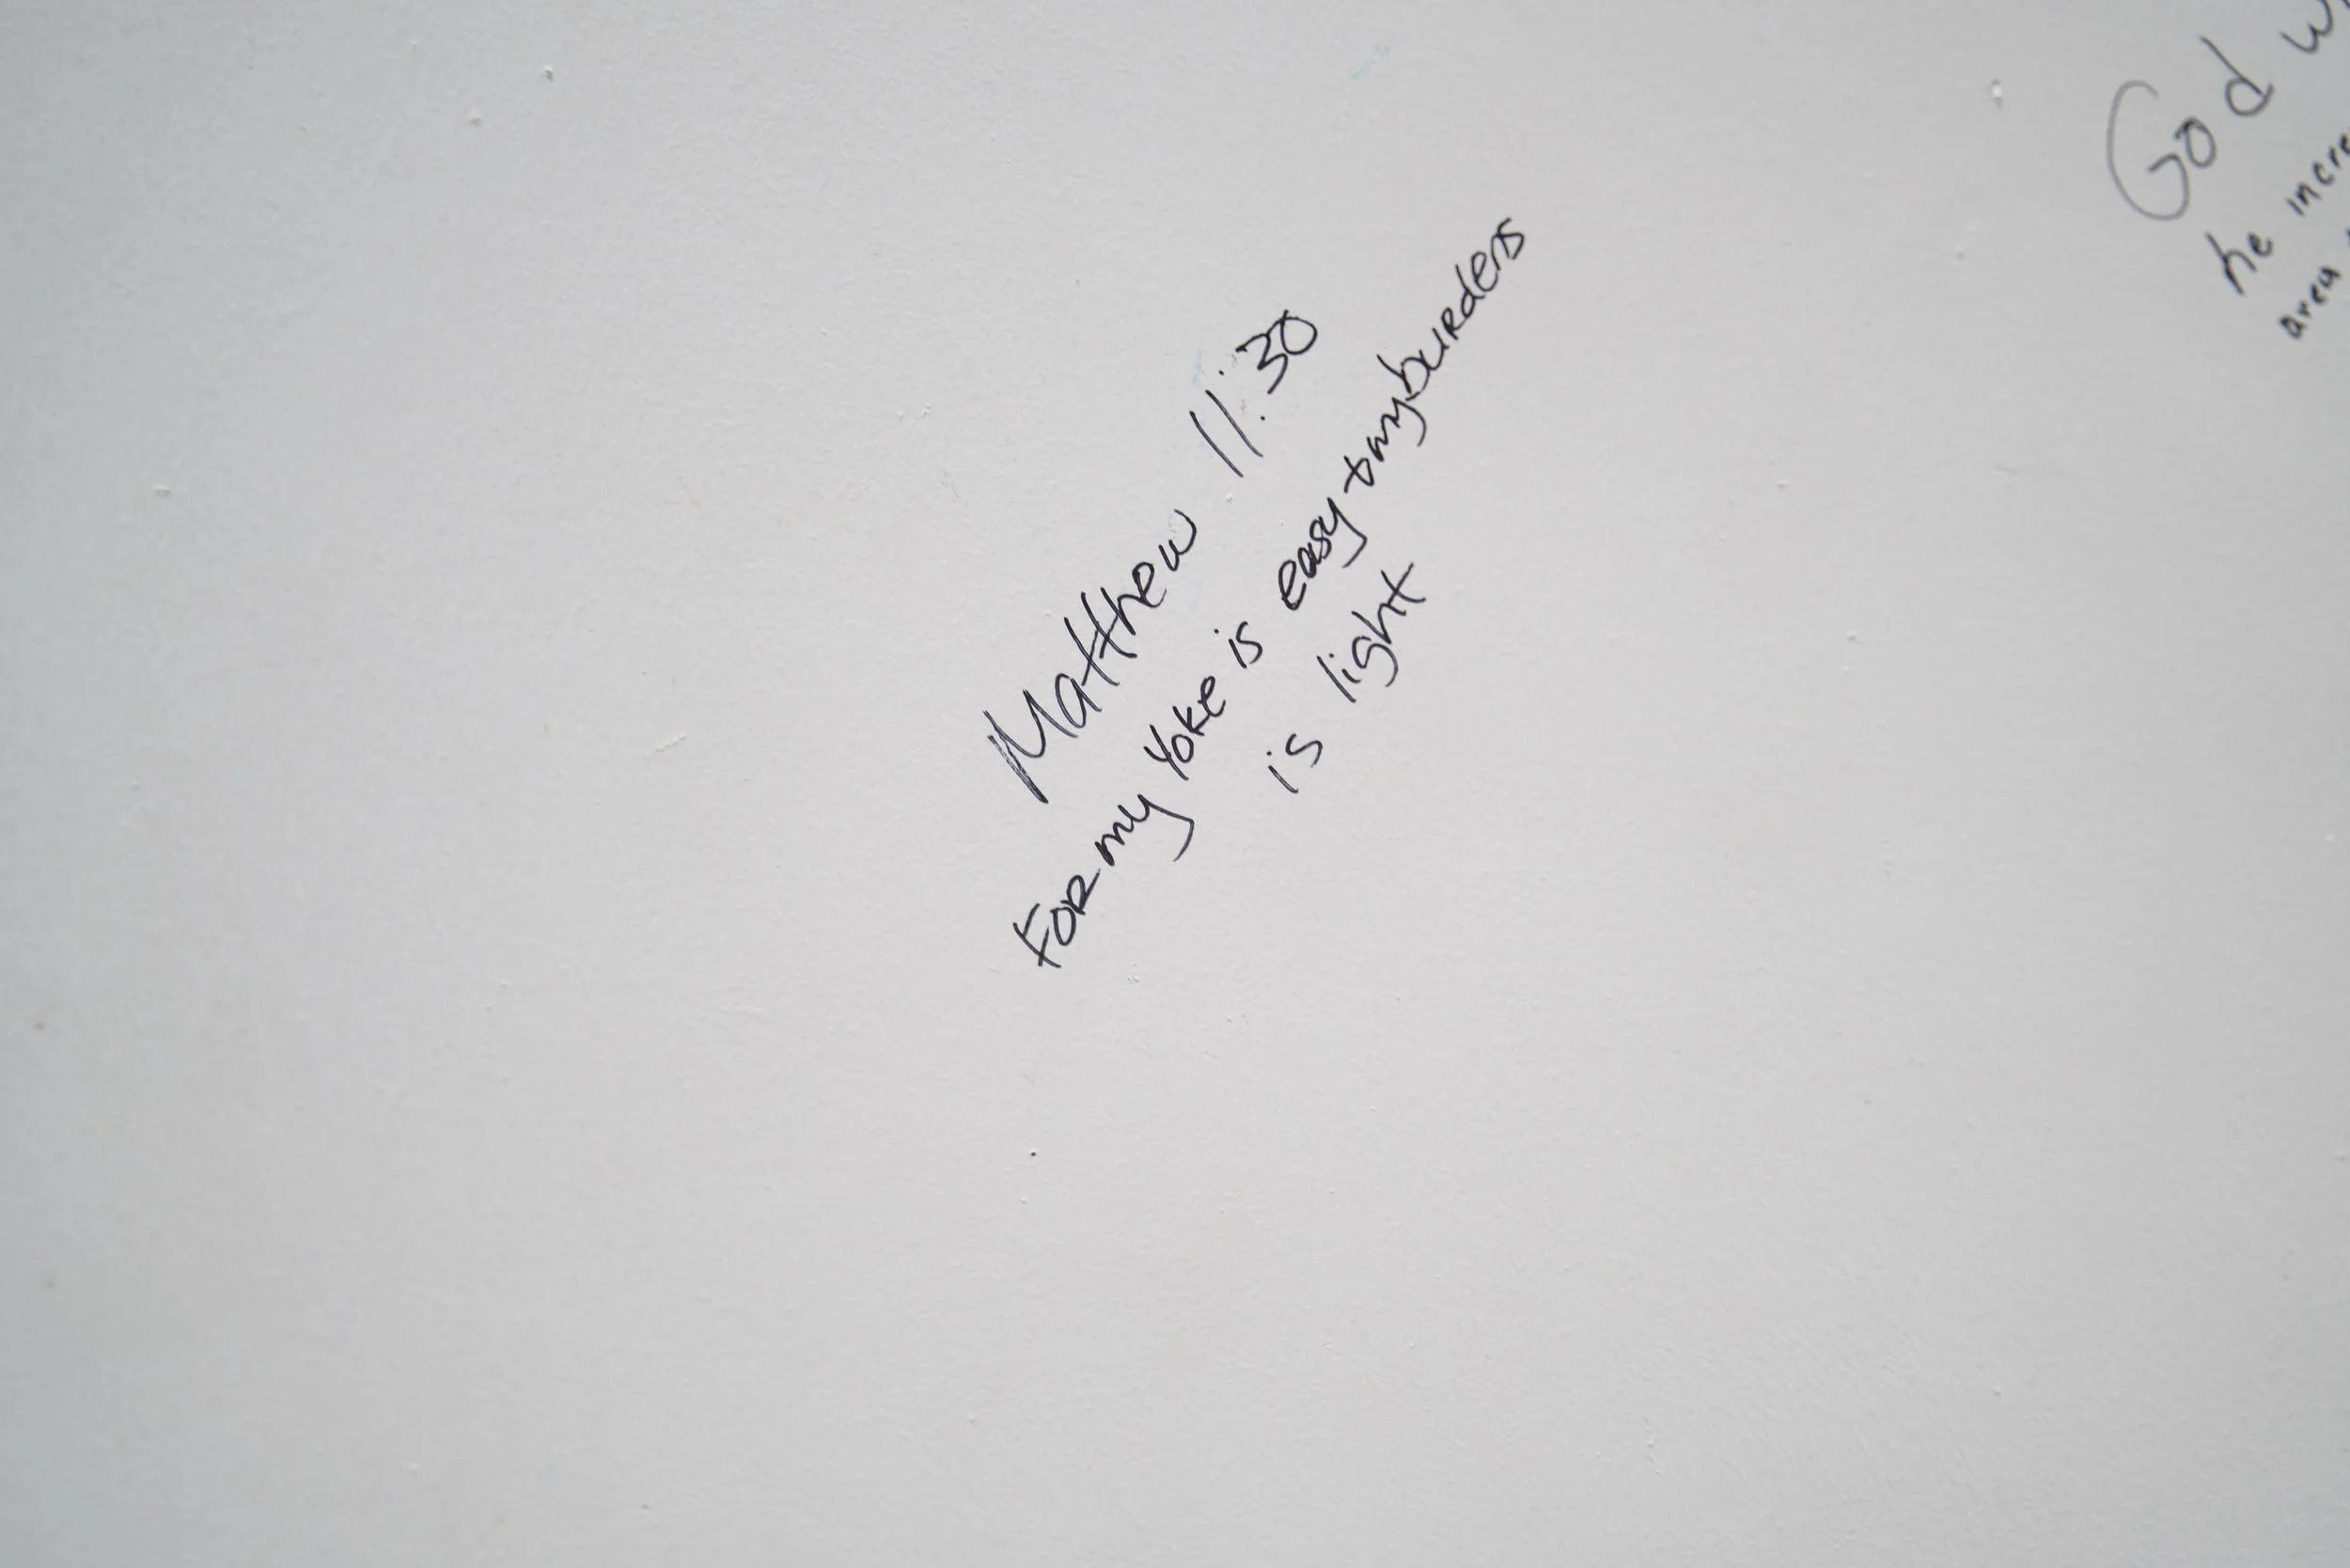 Matthew 11:30
For my Yoke is easy + my burdens
is light
God
he
area